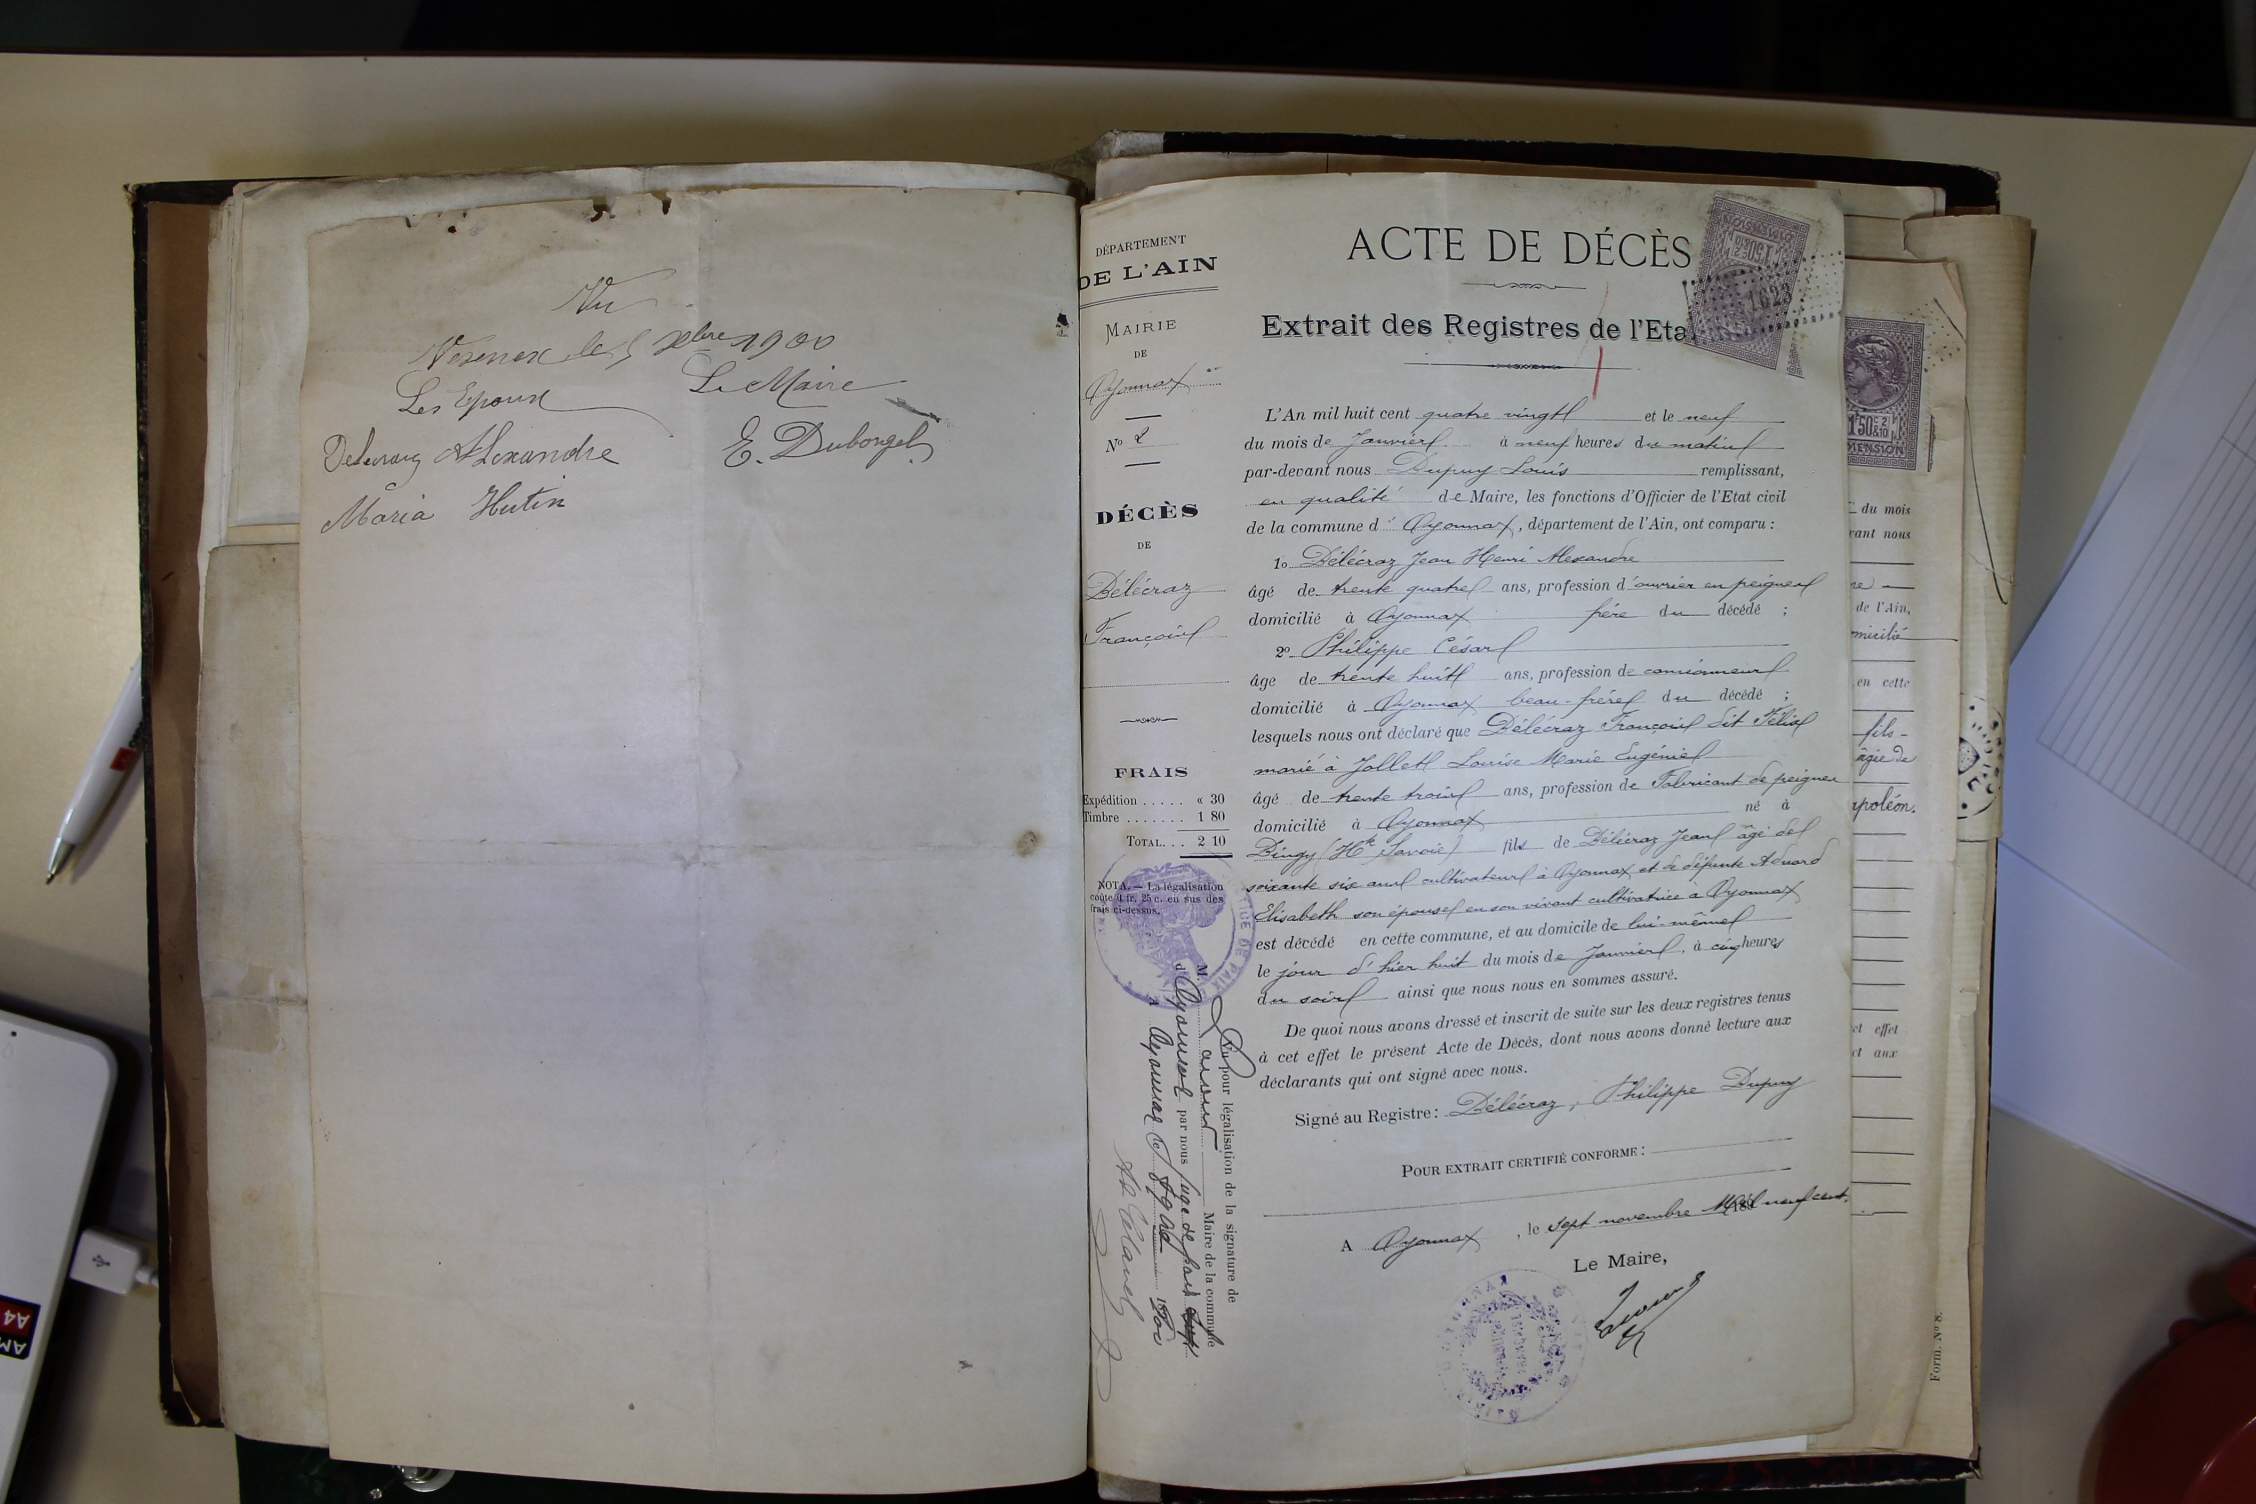 Vu
Vesenex le 5 Xbre 1900
Les Epoux
Le Maire
Delecraz Alexandre
E. Duborgel
Maria Hutin
DÉPARTEMENT
DE L'AIN
MAIRIE
DE
Oyonnax
No 2
DÉCÈS
DE
Délécraz
François
FRAIS
Expédition . . . . . « 30
Timbre . . . . . . . 1 80
TOTAL. . . 2 10
NOTA. — La légalisation
coûte 0 fr. 25 c. en sus des
frais ci-dessus.
Vu pour légalisation de la signature de
M. Maire de la commune
d' Oyonnax par nous juge de paix
A Oyonnax le 8 9bre 1900
ACTE DE DÉCÈS
Extrait des Registres de l'Eta
1623
1'50c
L'An mil huit cent quatre vingt et le neuf
du mois de Janvier à neuf heures du matin
par-devant nous Dupuy Louis remplissant,
en qualité de Maire, les fonctions d'Officier de l'Etat civil
de la commune d' Oyonnax, département de l'Ain, ont comparu :
1o Délécraz Jean Henri Alexandre
âgé de trente quatre ans, profession d'ouvrier en peignes
domicilié à Oyonnax frère du décédé ;
2o Philippe César
âge de trente huit ans, profession de camionneur
domicilié à Oyonnax beau-frère du décédé ;
lesquels nous ont déclaré que Délécraz François dit Félix
marié à Jollet Louise Marie Eugénie
âgé de trente trois ans, profession de Fabricant de peignes
domicilié à Oyonnax né à
Dingy (Hte Savoie) fils de Délécraz Jean âgé de
soixante six ans cultivateur à Oyonnax et de défunte
Elisabeth son épouse en son vivant cultivatrice à Oyonnax
est décédé en cette commune, et au domicile de lui-même
le jour d'hier huit du mois de Janvier, à cinq heures
du soir ainsi que nous nous en sommes assuré.
De quoi nous avons dressé et inscrit de suite sur les deux registres tenus
à cet effet le présent Acte de Décès, dont nous avons donné lecture aux
déclarants qui ont signé avec nous.
Signé au Registre : Délécraz, Philippe Dupuy
POUR EXTRAIT CERTIFIÉ CONFORME :
A Oyonnax, le sept novembre Mil neuf cent.
Le Maire,
1'50c 2/10
MENSION
du mois
vant nous
de l'Ain,
micilié
en cette
fils -
âgée de
apoléon.
et effet
et aux
Form. No 8.
A4